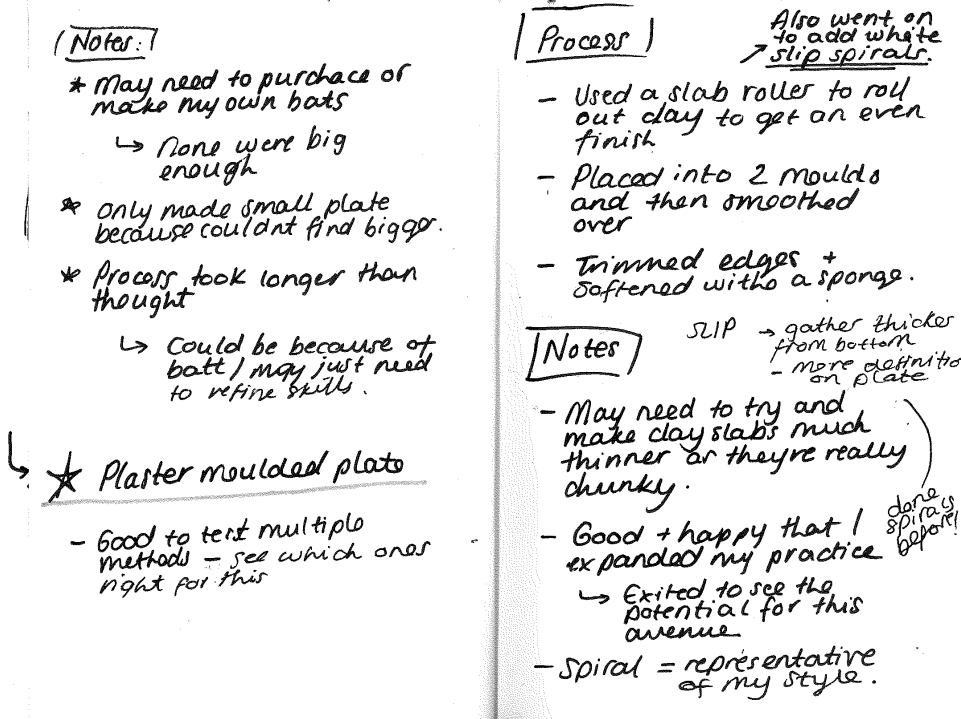 Notes:
* May need to purchace or
make my own bats
↳ None were big
enough
* only made small plate
because couldnt find bigger.
* Process took longer than
thought
↳ Could be because of
batt / may just need
to refine skills.
↳ ★ Plaster moulded plate
- Good to test multiple
methods - see which ones
right for this
Process
Also went on
to add white
↗ slip spirals.
- Used a slab roller to roll
out clay to get an even
finish
- Placed into 2 moulds
and then smoothed
over
- Trimmed edges +
softened with a sponge.
SLIP → gather thicker
from bottom
- more definitio
on plate
Notes
- May need to try and
make clay slabs much
thinner as they're really
chunky.
done
spirals
before!
- Good + happy that I
expanded my practice
↳ Exited to see the
potential for this
avenue
- Spiral = representative
of my style.